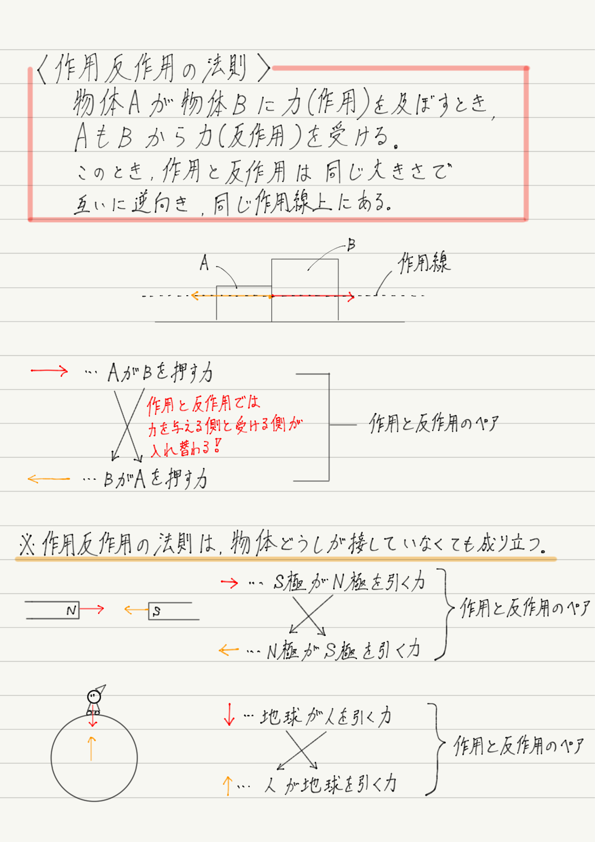 〈作用反作用の法則〉
物体Aが物体Bに力(作用)を及ぼすとき,
AもBから力(反作用)を受ける。
このとき,作用と反作用は同じ大きさで
互いに逆向き,同じ作用線上にある。
A
B
作用線
… AがBを押す力
作用と反作用では
力を与える側と受ける側が
入れ替わる!
作用と反作用のペア
… BがAを押す力
※作用反作用の法則は,物体どうしが接していなくても成り立つ。
N
S
… S極がN極を引く力
作用と反作用のペア
… N極がS極を引く力
… 地球が人を引く力
作用と反作用のペア
… 人が地球を引く力